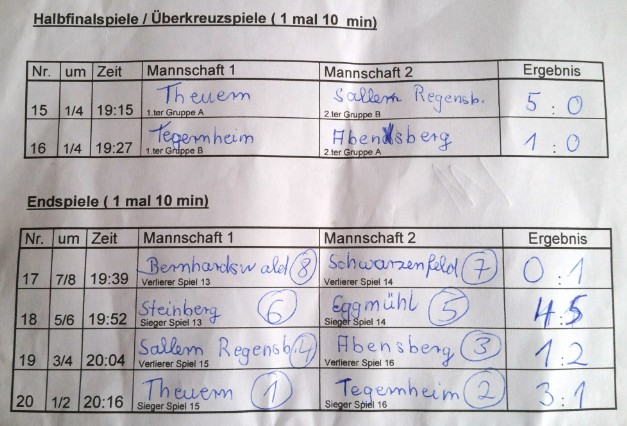 Halbfinalspiele / Überkreuzspiele ( 1 mal 10 min)
Nr. um Zeit Mannschaft 1 Mannschaft 2 Ergebnis
15 1/4 19:15 Theuern Sallern Regensb. 5 : 0
1.ter Gruppe A 2.ter Gruppe B
16 1/4 19:27 Tegernheim Abensberg 1 : 0
1.ter Gruppe B 2.ter Gruppe A
Endspiele ( 1 mal 10 min)
Nr. um Zeit Mannschaft 1 Mannschaft 2 Ergebnis
17 7/8 19:39 Bernhardswald 8 Schwarzenfeld 7 0 : 1
Verlierer Spiel 13 Verlierer Spiel 14
18 5/6 19:52 Steinberg 6 Eggmühl 5 4:5
Sieger Spiel 13 Sieger Spiel 14
19 3/4 20:04 Sallern Regensb. 4 Abensberg 3 1:2
Verlierer Spiel 15 Verlierer Spiel 16
20 1/2 20:16 Theuern 1 Tegernheim 2 3:1
Sieger Spiel 15 Sieger Spiel 16